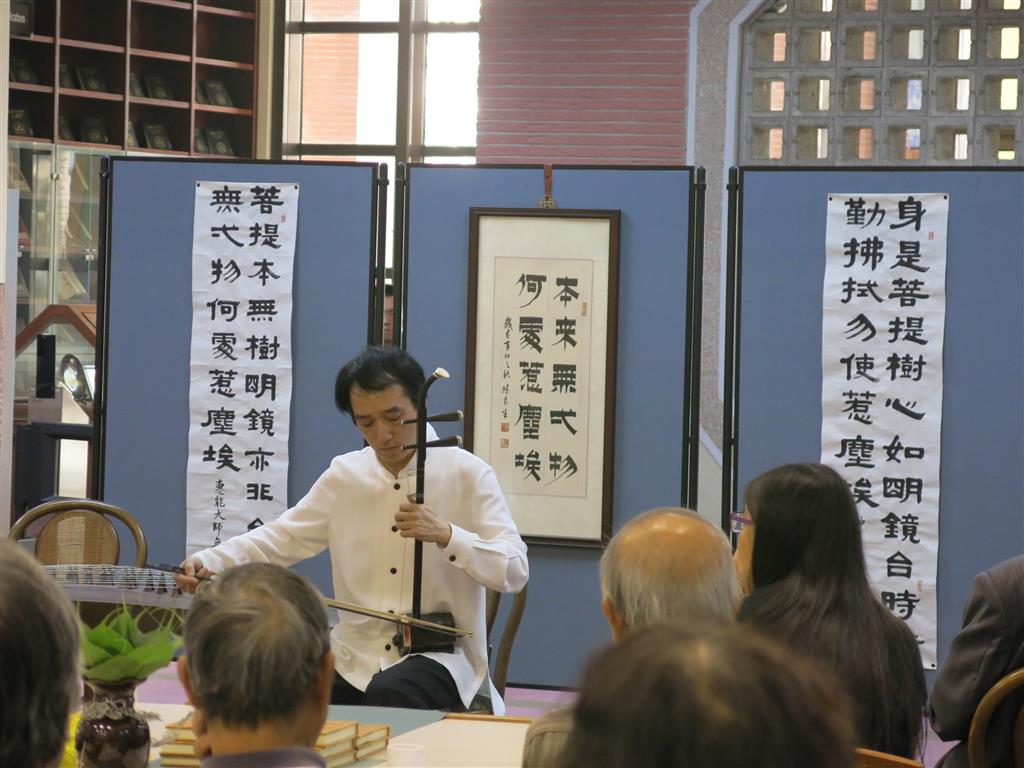 身是菩提樹心如明鏡台時
勤拂拭勿使惹塵埃
本来無弌物
何處惹塵埃
菩提本無樹明鏡亦非
無弌物何處惹塵埃
惠能大師